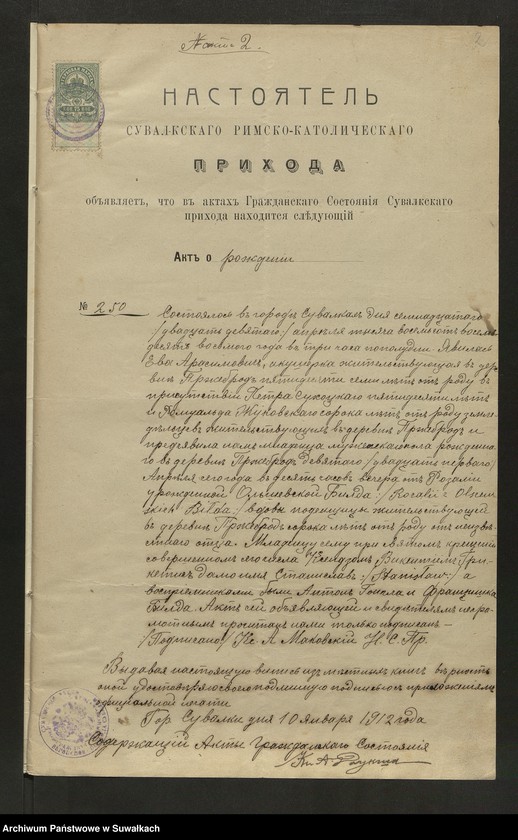 НАСТОЯТЕЛЬ
СУВАЛКСКАГО РИМСКО-КАТОЛИЧЕСКАГО
ПРИХОДА
объявляетъ, что въ актахъ Гражданскаго Состоянія Сувалкскаго
прихода находится слѣдующій
Актъ о рожденіи
№ 250
Состоялось въ городѣ Сувалкахъ дня семнадцатаго
/двадцать девятаго/ апрѣля тысяча восемьсотъ восемь
десятъ восьмого года въ три часа пополудни. Явилась
Ева Арасимовичъ, акушерка жительствующая въ дер
вни Пржебродъ пятидесяти семи лѣтъ отъ роду въ
присутствіи Петра Сукоцкаго пятидесяти лѣтъ
и Ромуальда Жуковскаго сорока лѣтъ отъ роду земле
дѣльцевъ жительствующихъ въ деревни Пржебродъ и
предъявила намъ младенца мужескаго пола рожденна
го въ деревни Пржебродъ девятаго /двадцать перваго/
Апрѣля сего года въ десять часовъ вечера отъ Розаліи
урожденной Ольшевской Билда /Rozalii z Olszew
skich Bilda/ вдовы поденщицы жительствующей
въ деревни Пржебродъ сорока лѣтъ отъ роду отъ неизвѣ
стнаго отца. Младенцу сему при Святомъ крещеніи
совершенномъ сего числа Ксендзомъ Викентіемъ
дано имя Станиславъ /Stanisław/ а
воспріемниками были Антонъ и Францишка
Билда. Актъ сей объявляющей и свидѣтелямъ негра
мотнымъ прочитанъ нами только подписанъ —
/Подписано/ Кс. А. Маковскій Н. С. Пр.
Выдавая настоящую выпись изъ мѣстныхъ книгъ вѣрность
оной удостовѣряю своею подписью съ приложеніемъ
оффиціальной печати
Гор. Сувалки дня 10 Января 1912 года
Содержащій Акты Гражданскаго Состоянія
Кс. А.
Archiwum Państwowe w Suwałkach